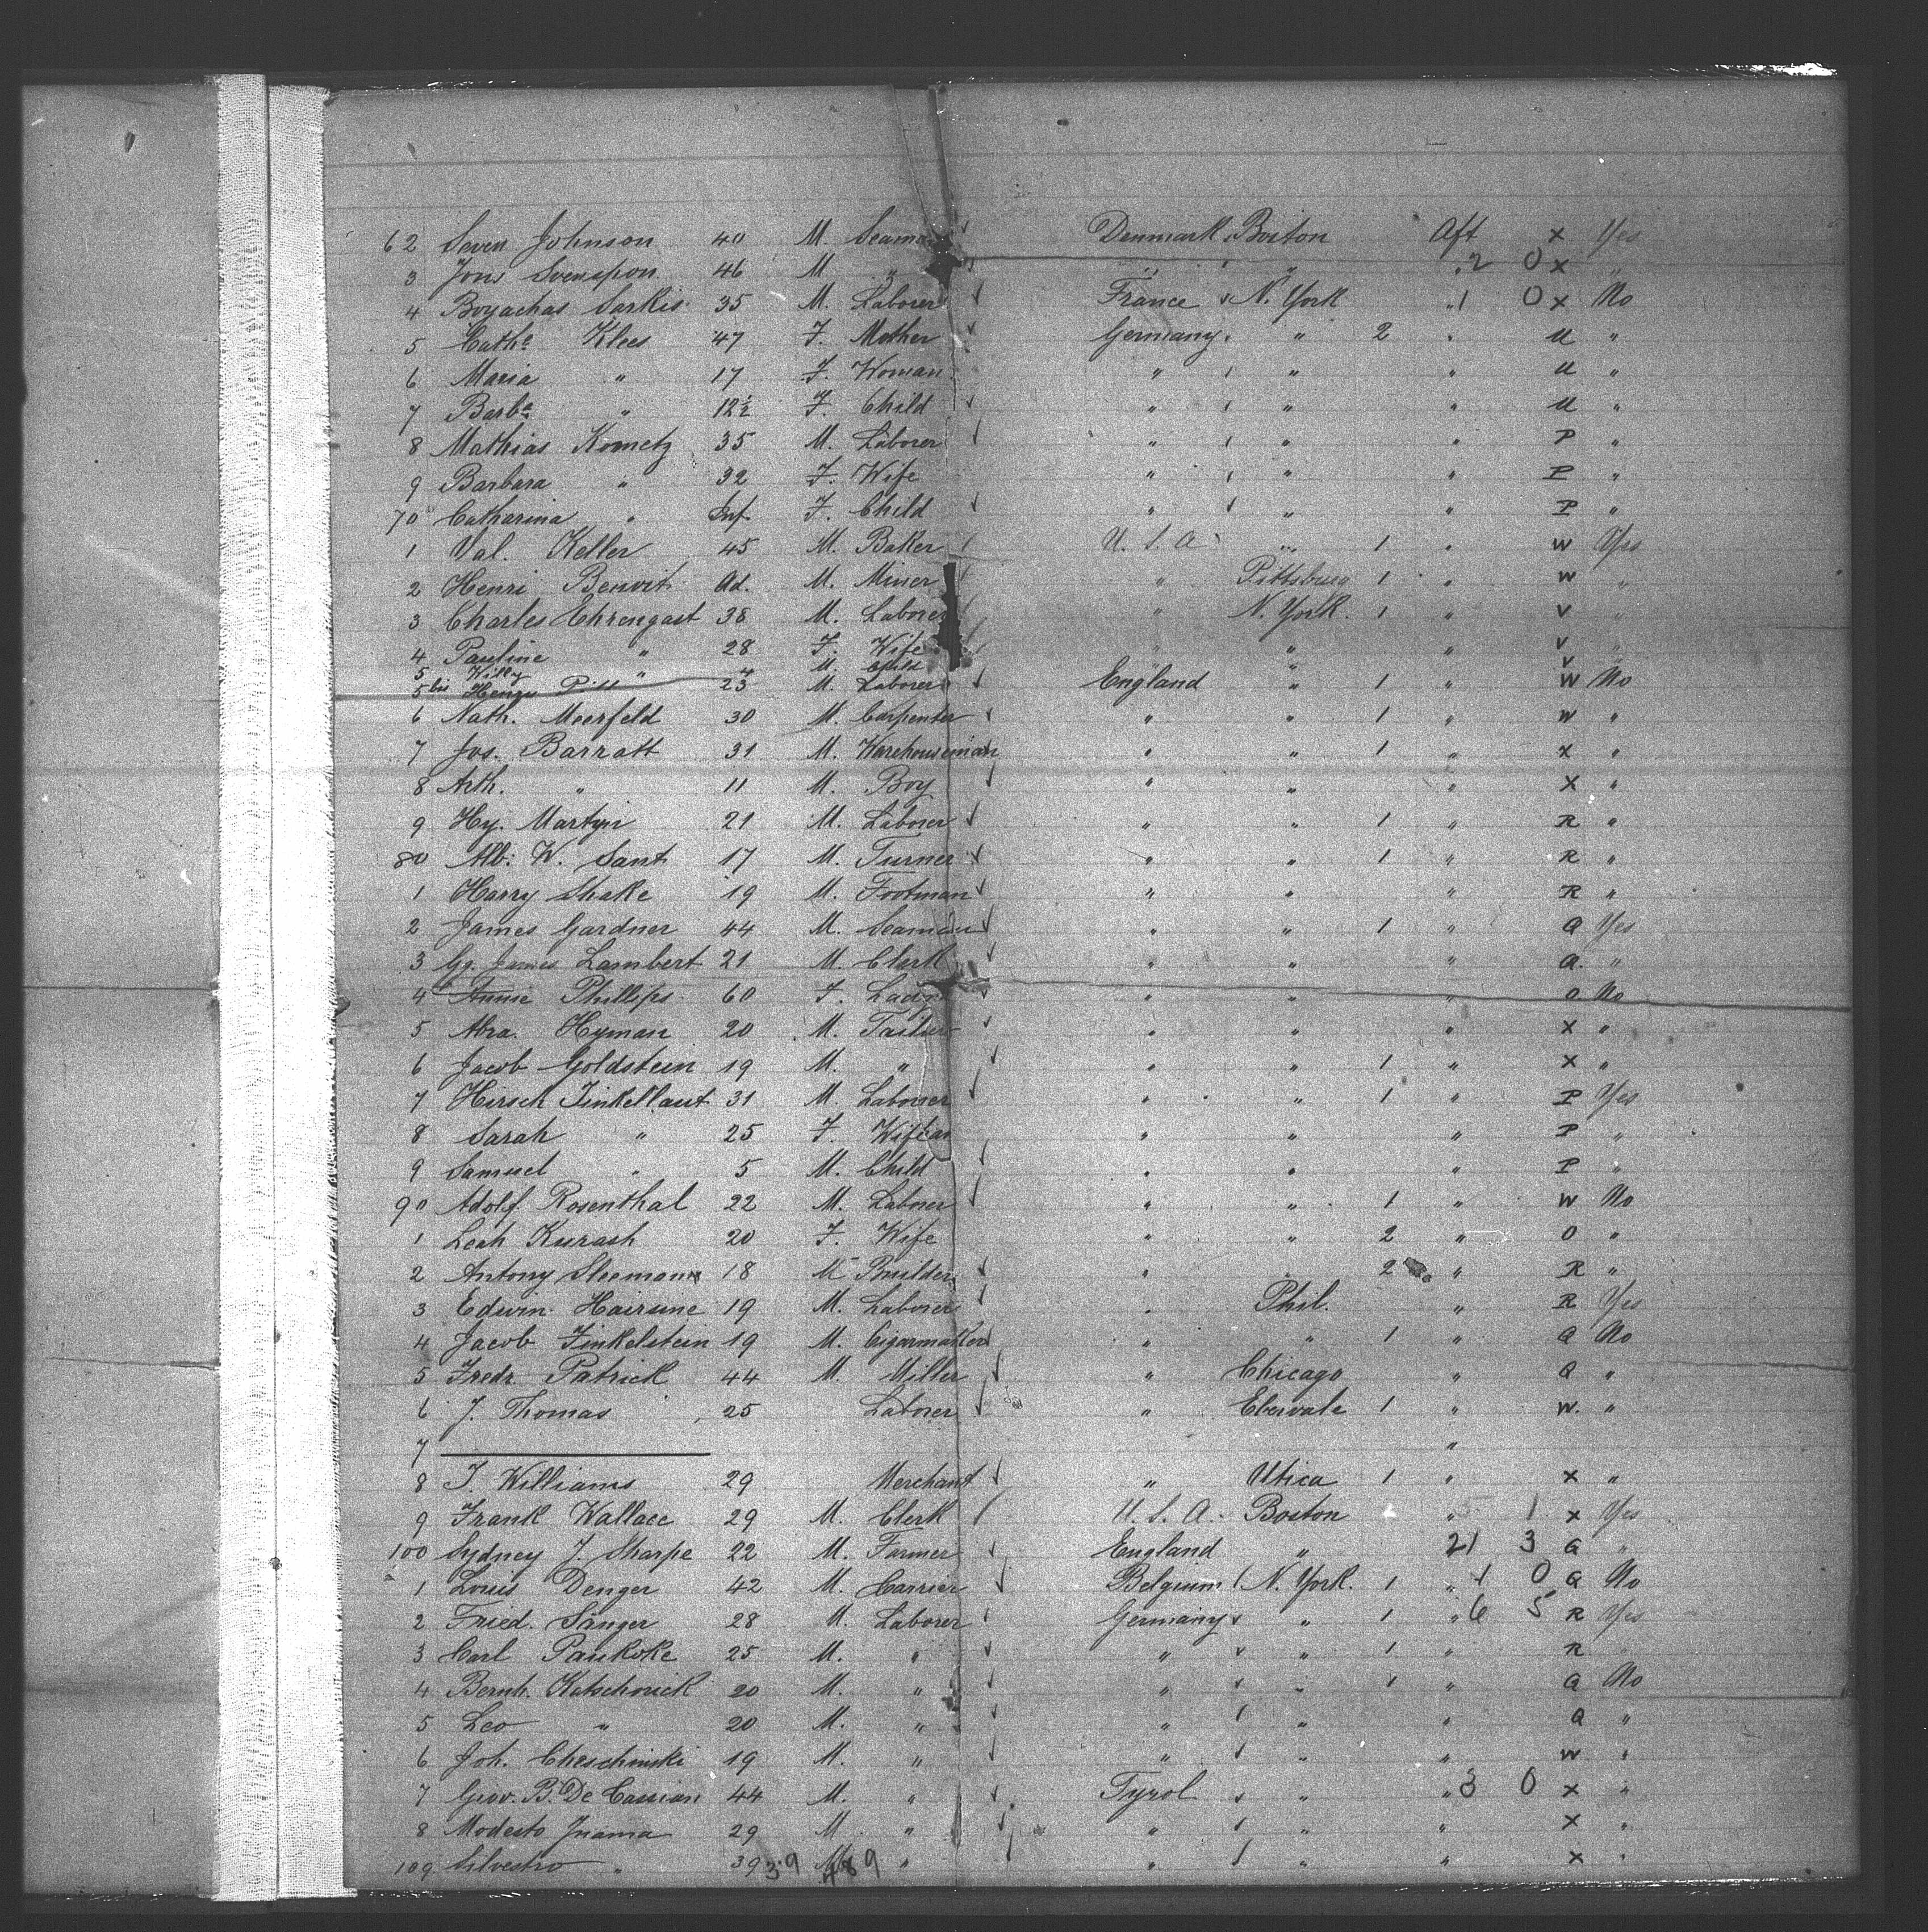 62 Seven Johnson 40 M. Seaman Denmark Boston Aft x Yes
3 Jons Svensson 46 M " " " 2 0 x "
4 Boyachas Sarkis 35 M. Laborer France N. York " 1 0 x No
5 Cathe Klees 47 F. Mother Germany " 2 " U "
6 Maria " 17 F. Woman " " " U "
7 Barba " 12½ F. Child " " " U "
8 Mathias Kometz 35 M. Laborer " " " P "
9 Barbara " 32 F. Wife " " " P "
70 Catharina " Inf F. Child " " " P "
1 Val. Keller 45 M. Baker U. S. A " 1 " W Yes
2 Henri Benoit Ad. M. Miner " Pittsburg 1 " W "
3 Charles Ehrengast 38 M. Laborer " N. York. 1 " V "
4 Pauline " 28 F. Wife " " " V "
5 Willy " 4 M. Child " V
5 bis Henry 23 M. Laborer England " 1 " W No
6 Nath. Meerfeld 30 M. Carpenter " " 1 " W "
7 Jos. Barratt 31 M. Warehouseman " " 1 " x "
8 Arth. " 11 M. Boy " " " x "
9 Hy. Martyn 21 M. Laborer " " 1 " R "
80 Alb. W. Sant 17 M. Turner " " 1 " R "
1 Harry Shake 19 M. Footman " " " R "
2 James Gardner 44 M. Seaman " " 1 " a Yes
3 Gg. James Lambert 21 M. Clerk " " " a. "
4 Annie Phillips 60 F. Lady " " " O No
5 Abra. Hyman 20 M. Tailor " " " x "
6 Jacob Goldstein 19 M. " " " 1 " x "
7 Hersch Finkellaut 31 M Laborer " " 1 " P Yes
8 Sarah " 25 F. Wife " " " P "
9 Samuel " 5 M. Child " " " P "
90 Adolf Rosenthal 22 M. Laborer " " 1 " W No
1 Leah Kurash 20 F. Wife " " 2 " O "
2 Antony Sleeman 18 M Builder " " 2 " R "
3 Edwin Hairsine 19 M. Laborer " Phil. " R Yes
4 Jacob Finkelstein 19 M. Cigarmaker " " 1 " a No
5 Fredr. Patrick 44 M. Miller " Chicago " a "
6 J. Thomas 25 Laborer " Ebervale 1 " W. "
7 "
8 J. Williams 29 Merchant " Utica 1 " x "
9 Frank Wallace 29 M. Clerk U. S. A. Boston " 1 x Yes
100 Sydney J. Sharpe 22 M. Farmer England " 21 3 a "
1 Louis Denger 42 M. Carrier Belgium N. York. 1 " 1 0 a No
2 Fried. Sänger 28 M. Laborer Germany " 1 " 6 5 R Yes
3 Carl Paukoke 25 M. " " " 1 " R "
4 Bernh. Katschorick 20 M. " " " 1 " a No
5 Leo " 20 M. " " " " a "
6 Joh. Cheschinski 19 M. " " " " W "
7 Giov. B. De Cassian 44 M. " Tyrol " " 3 0 x "
8 Modesto Inama 29 M " " " " x "
109 Silvestro " 39 39 M 489 " " " " x "